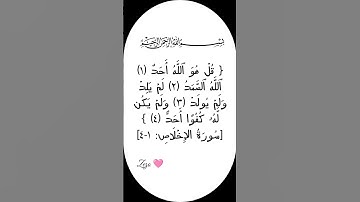 بسم الله الرحمن الرحيم
{ قُلْ هُوَ ٱللَّهُ أَحَدٌ (١)
ٱللَّهُ ٱلصَّمَدُ (٢) لَمْ يَلِدْ
وَلَمْ يُولَدْ (٣) وَلَمْ يَكُن
لَّهُۥ كُفُوًا أَحَدٌۢ (٤) }
[سُورَةُ الإِخْلَاصِ: ١-٤]